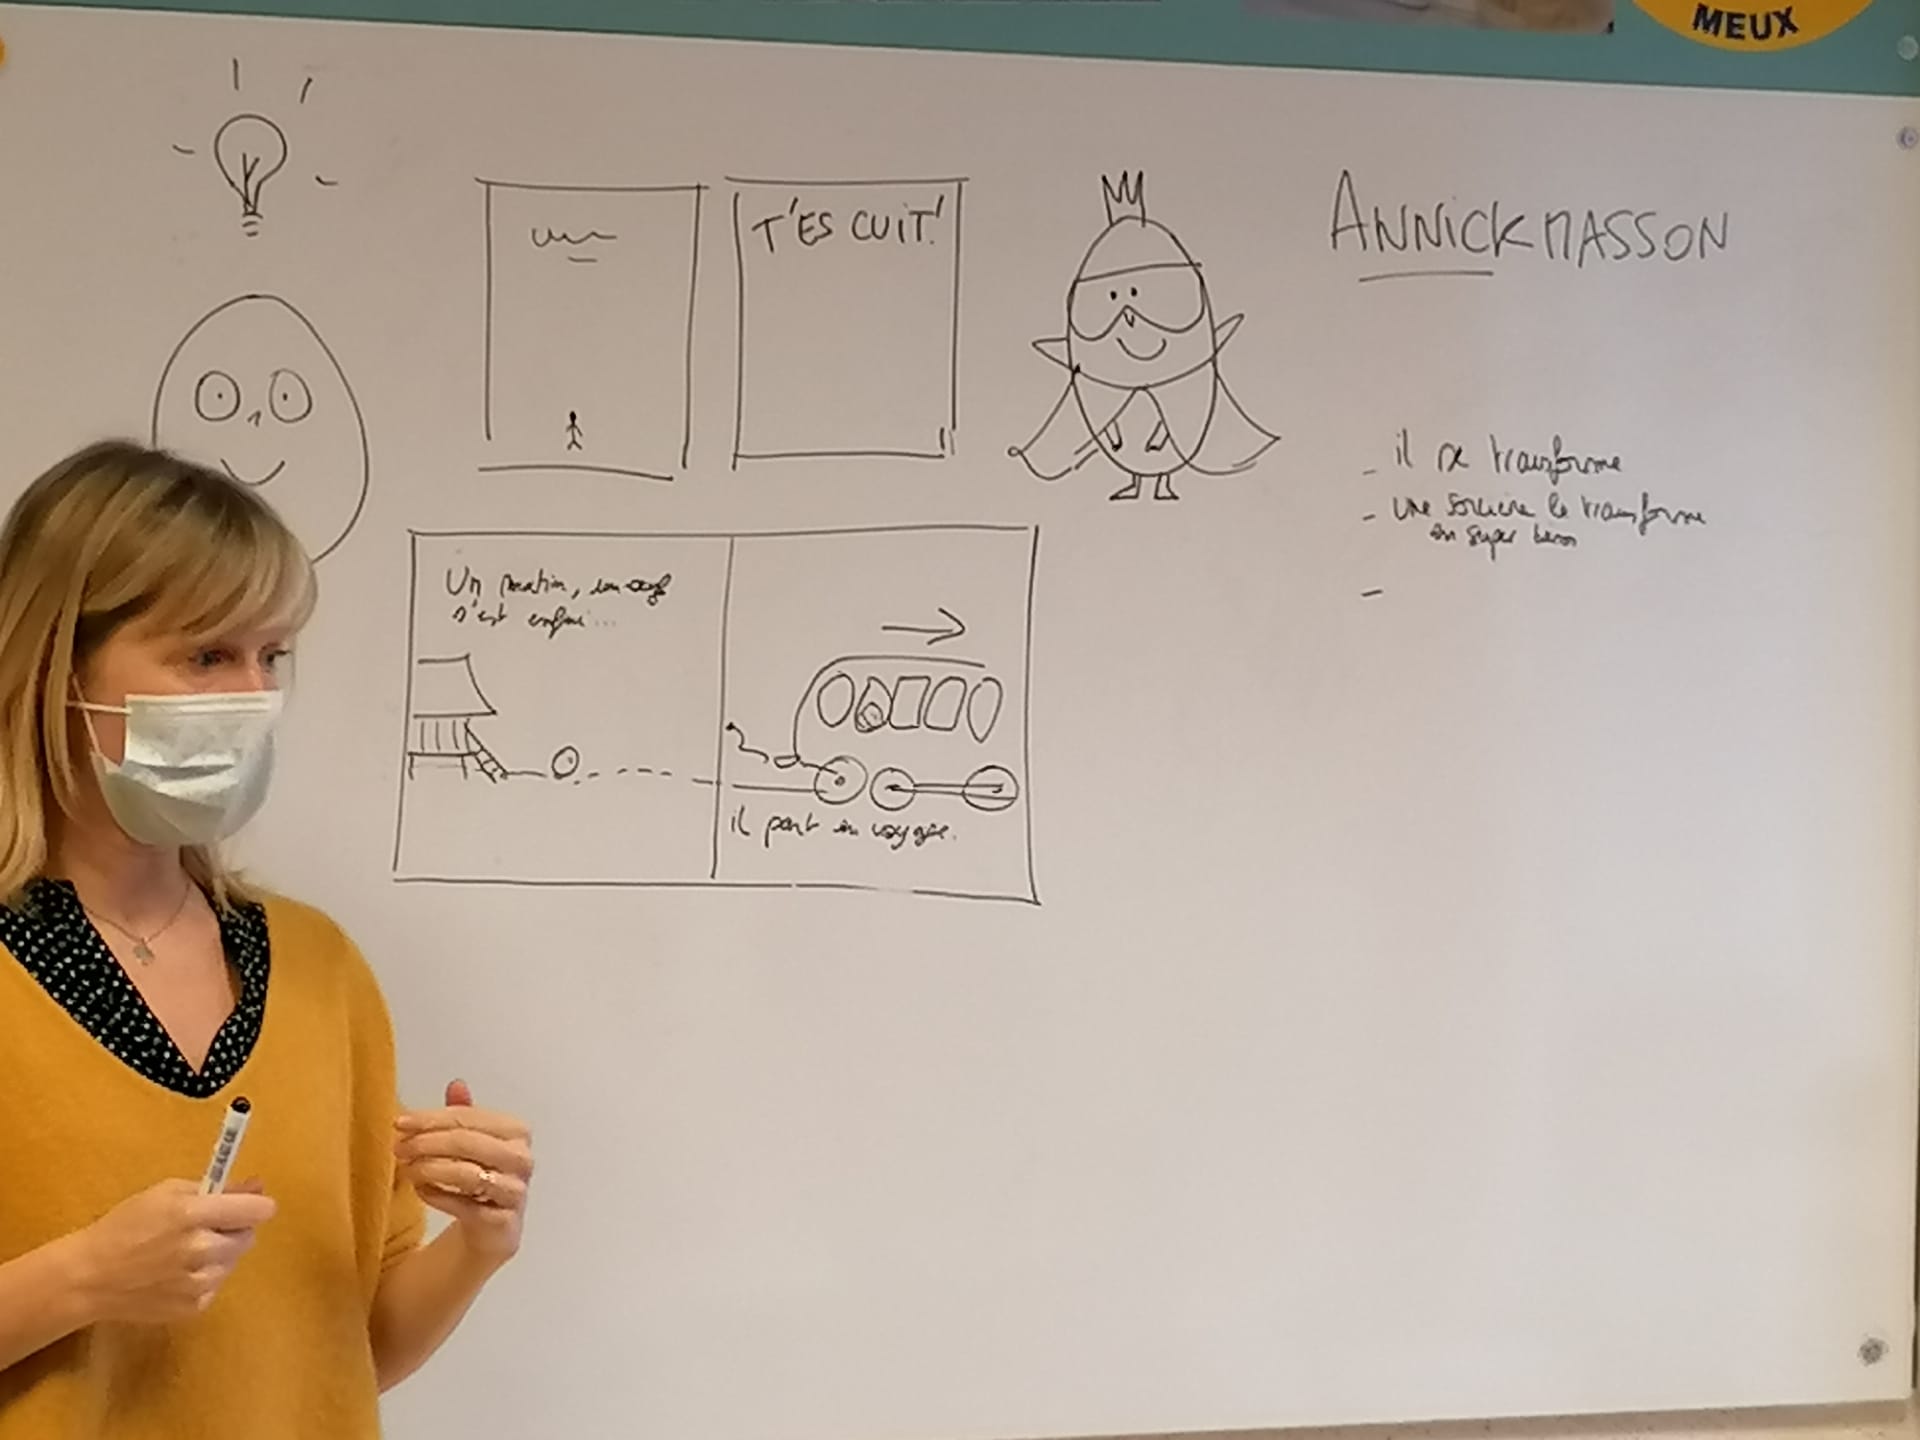 MEUX
T'ES CUIT!
ANNICK MASSON
- il se transforme
- une sorcière le transforme
en super héros
-
Un matin, un œuf
s'est enfui...
il part en voyage.